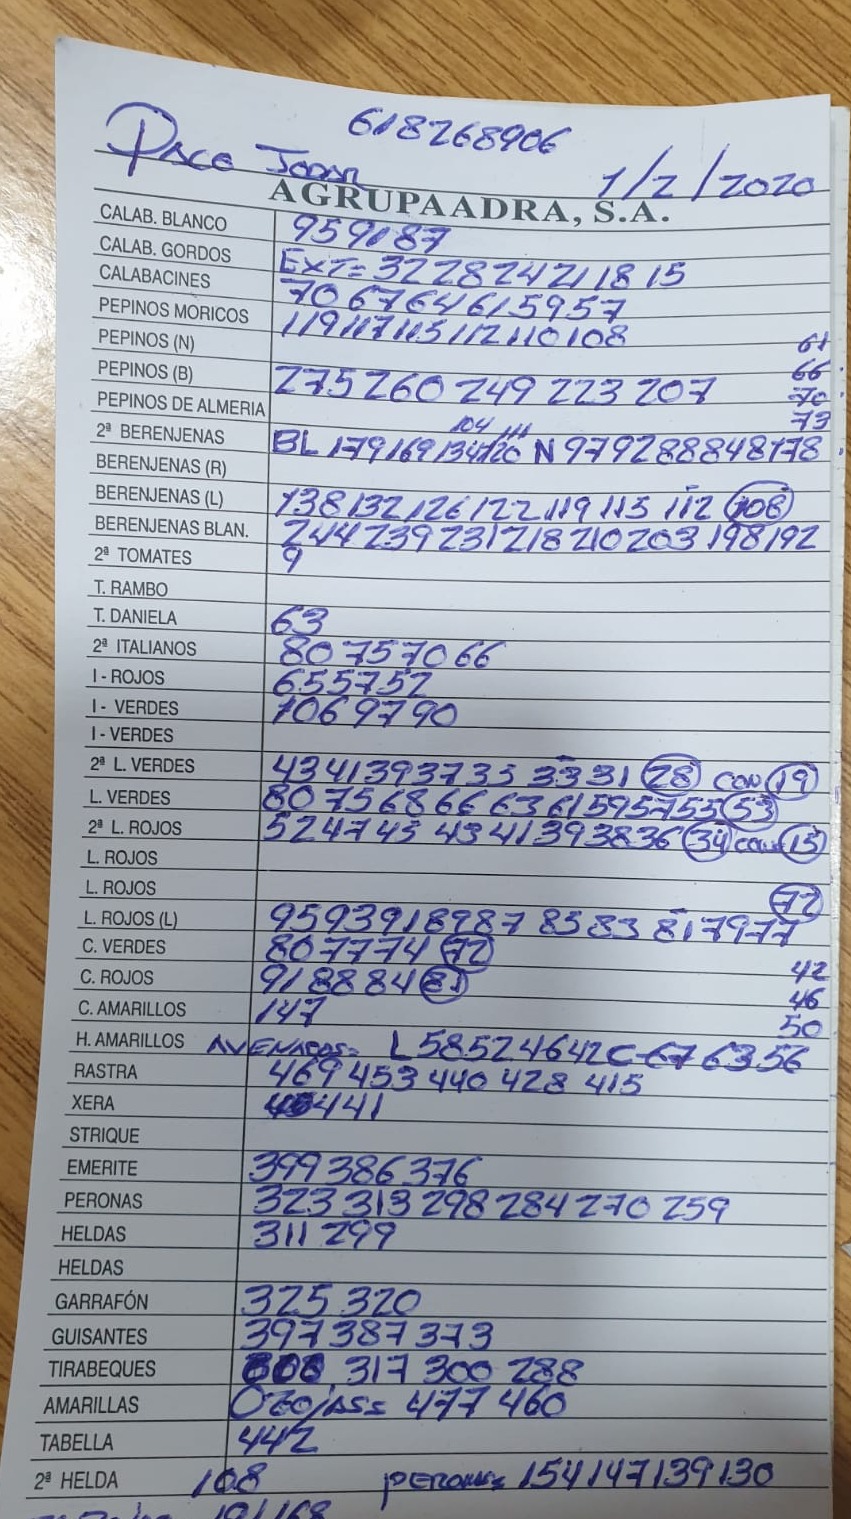 618268906
Paco Jodar 1/2/2020
AGRUPAADRA, S.A.
CALAB. BLANCO 95 91 87
CALAB. GORDOS EXT= 32 28 24 21 18 15
CALABACINES 70 67 64 61 59 57
PEPINOS MORICOS 119 117 115 112 110 108
PEPINOS (N) 61
PEPINOS (B) 275 260 249 223 207 66
PEPINOS DE ALMERIA 70
104 111 73
2ª BERENJENAS BL 179 169 134 120 N 97 92 88 84 81 78
BERENJENAS (R)
BERENJENAS (L) 138 132 126 122 119 115 112 108
BERENJENAS BLAN. 244 239 231 218 210 203 198 192
2ª TOMATES 9
T. RAMBO
T. DANIELA 63
2ª ITALIANOS 80 75 70 66
I - ROJOS 65 57 52
I - VERDES 106 97 90
I - VERDES
2ª L. VERDES 43 41 39 37 35 33 31 28 CON 19
L. VERDES 80 75 68 66 63 61 59 57 55 53
2ª L. ROJOS 52 47 45 43 41 39 38 36 34 CON 15
L. ROJOS
L. ROJOS 72
L. ROJOS (L) 95 93 91 89 87 85 83 81 79 77
C. VERDES 80 77 74 72
C. ROJOS 91 88 84 81 42
46
C. AMARILLOS 147 50
H. AMARILLOS L 58 52 46 42 C-67 63 56
RASTRA 469 453 440 428 415
XERA 441
STRIQUE
EMERITE 399 386 376
PERONAS 323 313 298 284 270 259
HELDAS 311 299
HELDAS
GARRAFÓN 325 320
GUISANTES 397 387 373
TIRABEQUES 317 300 288
AMARILLAS 477 460
TABELLA 442
2ª HELDA 108 PERONAS 154 147 139 130
191 168